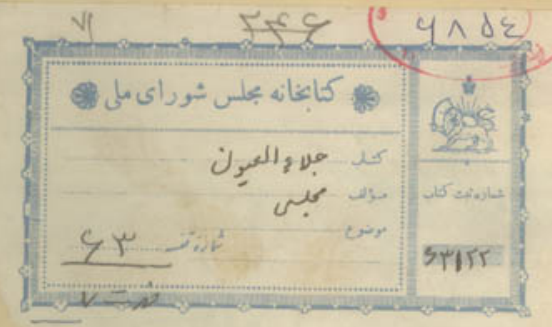 ۷۱ ۲۴۶ ۶۸۵۴
کتابخانه مجلس شورای ملی
کتاب جلاء العیون
مؤلف مجلسی
موضوع
شماره ثبت کتاب
شماره قفسه ۶۳
۶۳۱۲۲